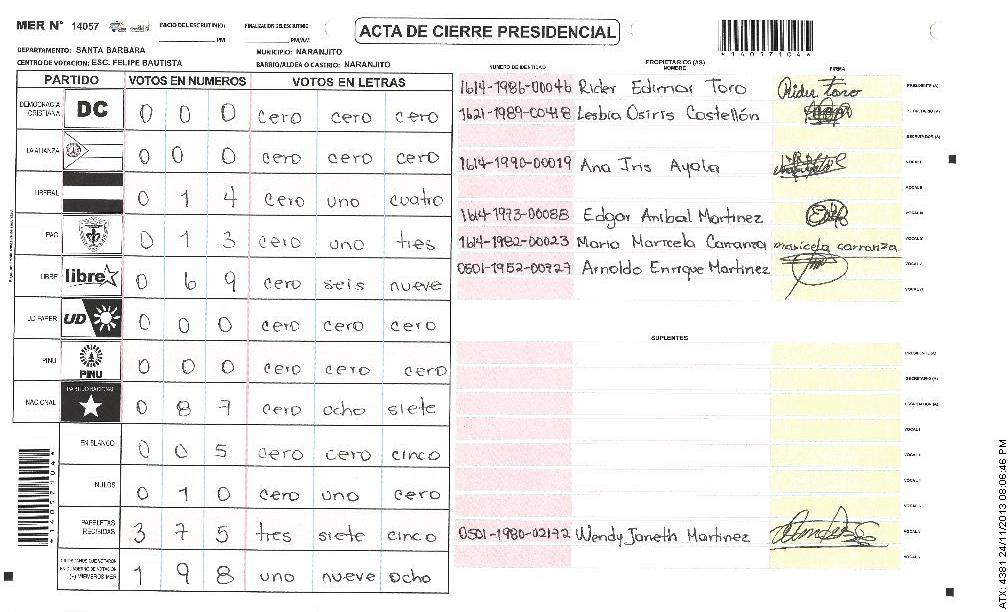 MER N° 14057 INICIO DEL ESCRUTINIO: ______ PM FINALIZACION DEL ESCRUTINIO: ______ PM/AM
ACTA DE CIERRE PRESIDENCIAL
*14057104*
DEPARTAMENTO: SANTA BARBARA MUNICIPIO: NARANJITO
CENTRO DE VOTACION: ESC. FELIPE BAUTISTA BARRIO/ALDEA O CASERIO: NARANJITO
PARTIDO VOTOS EN NUMEROS VOTOS EN LETRAS
DEMOCRACIA CRISTIANA DC 0 0 0 cero cero cero
LA ALIANZA 0 0 0 cero cero cero
LIBERAL 0 1 4 cero uno cuatro
PAC 0 1 3 cero uno tres
LIBRE libre 0 6 9 cero seis nueve
UD-FAPER UD 0 0 0 cero cero cero
PINU PINU 0 0 0 cero cero cero
NACIONAL PARTIDO NACIONAL 0 8 7 cero ocho siete
EN BLANCO 0 0 5 cero cero cinco
NULOS 0 1 0 cero uno cero
PAPELETAS RECIBIDAS 3 7 5 tres siete cinco
CIUDADANOS QUE VOTARON EN CUADERNO DE VOTACION (+) MIEMBROS MER 1 9 8 uno nueve ocho
*14057104*
PROPIETARIOS (AS)
NUMERO DE IDENTIDAD NOMBRE FIRMA
1614-1986-00046 Rider Edimar Toro Rider Toro PRESIDENTE (A)
1621-1989-00418 Lesbia Osiris Castellón SECRETARIO (A)
ESCRUTADOR (A)
1614-1990-00019 Ana Iris Ayala VOCAL I
VOCAL II
1614-1973-00088 Edgar Anibal Martinez VOCAL III
1614-1982-00023 Maria Maricela Carranza maricela carranza VOCAL IV
0501-1952-00727 Arnoldo Enrique Martinez VOCAL V
VOCAL VI
SUPLENTES
PRESIDENTE (A)
SECRETARIO (A)
ESCRUTADOR (A)
VOCAL I
0501-1980-02172 Wendy Janeth Martinez
ATX: 4381 24/11/2013 08:06:46 PM